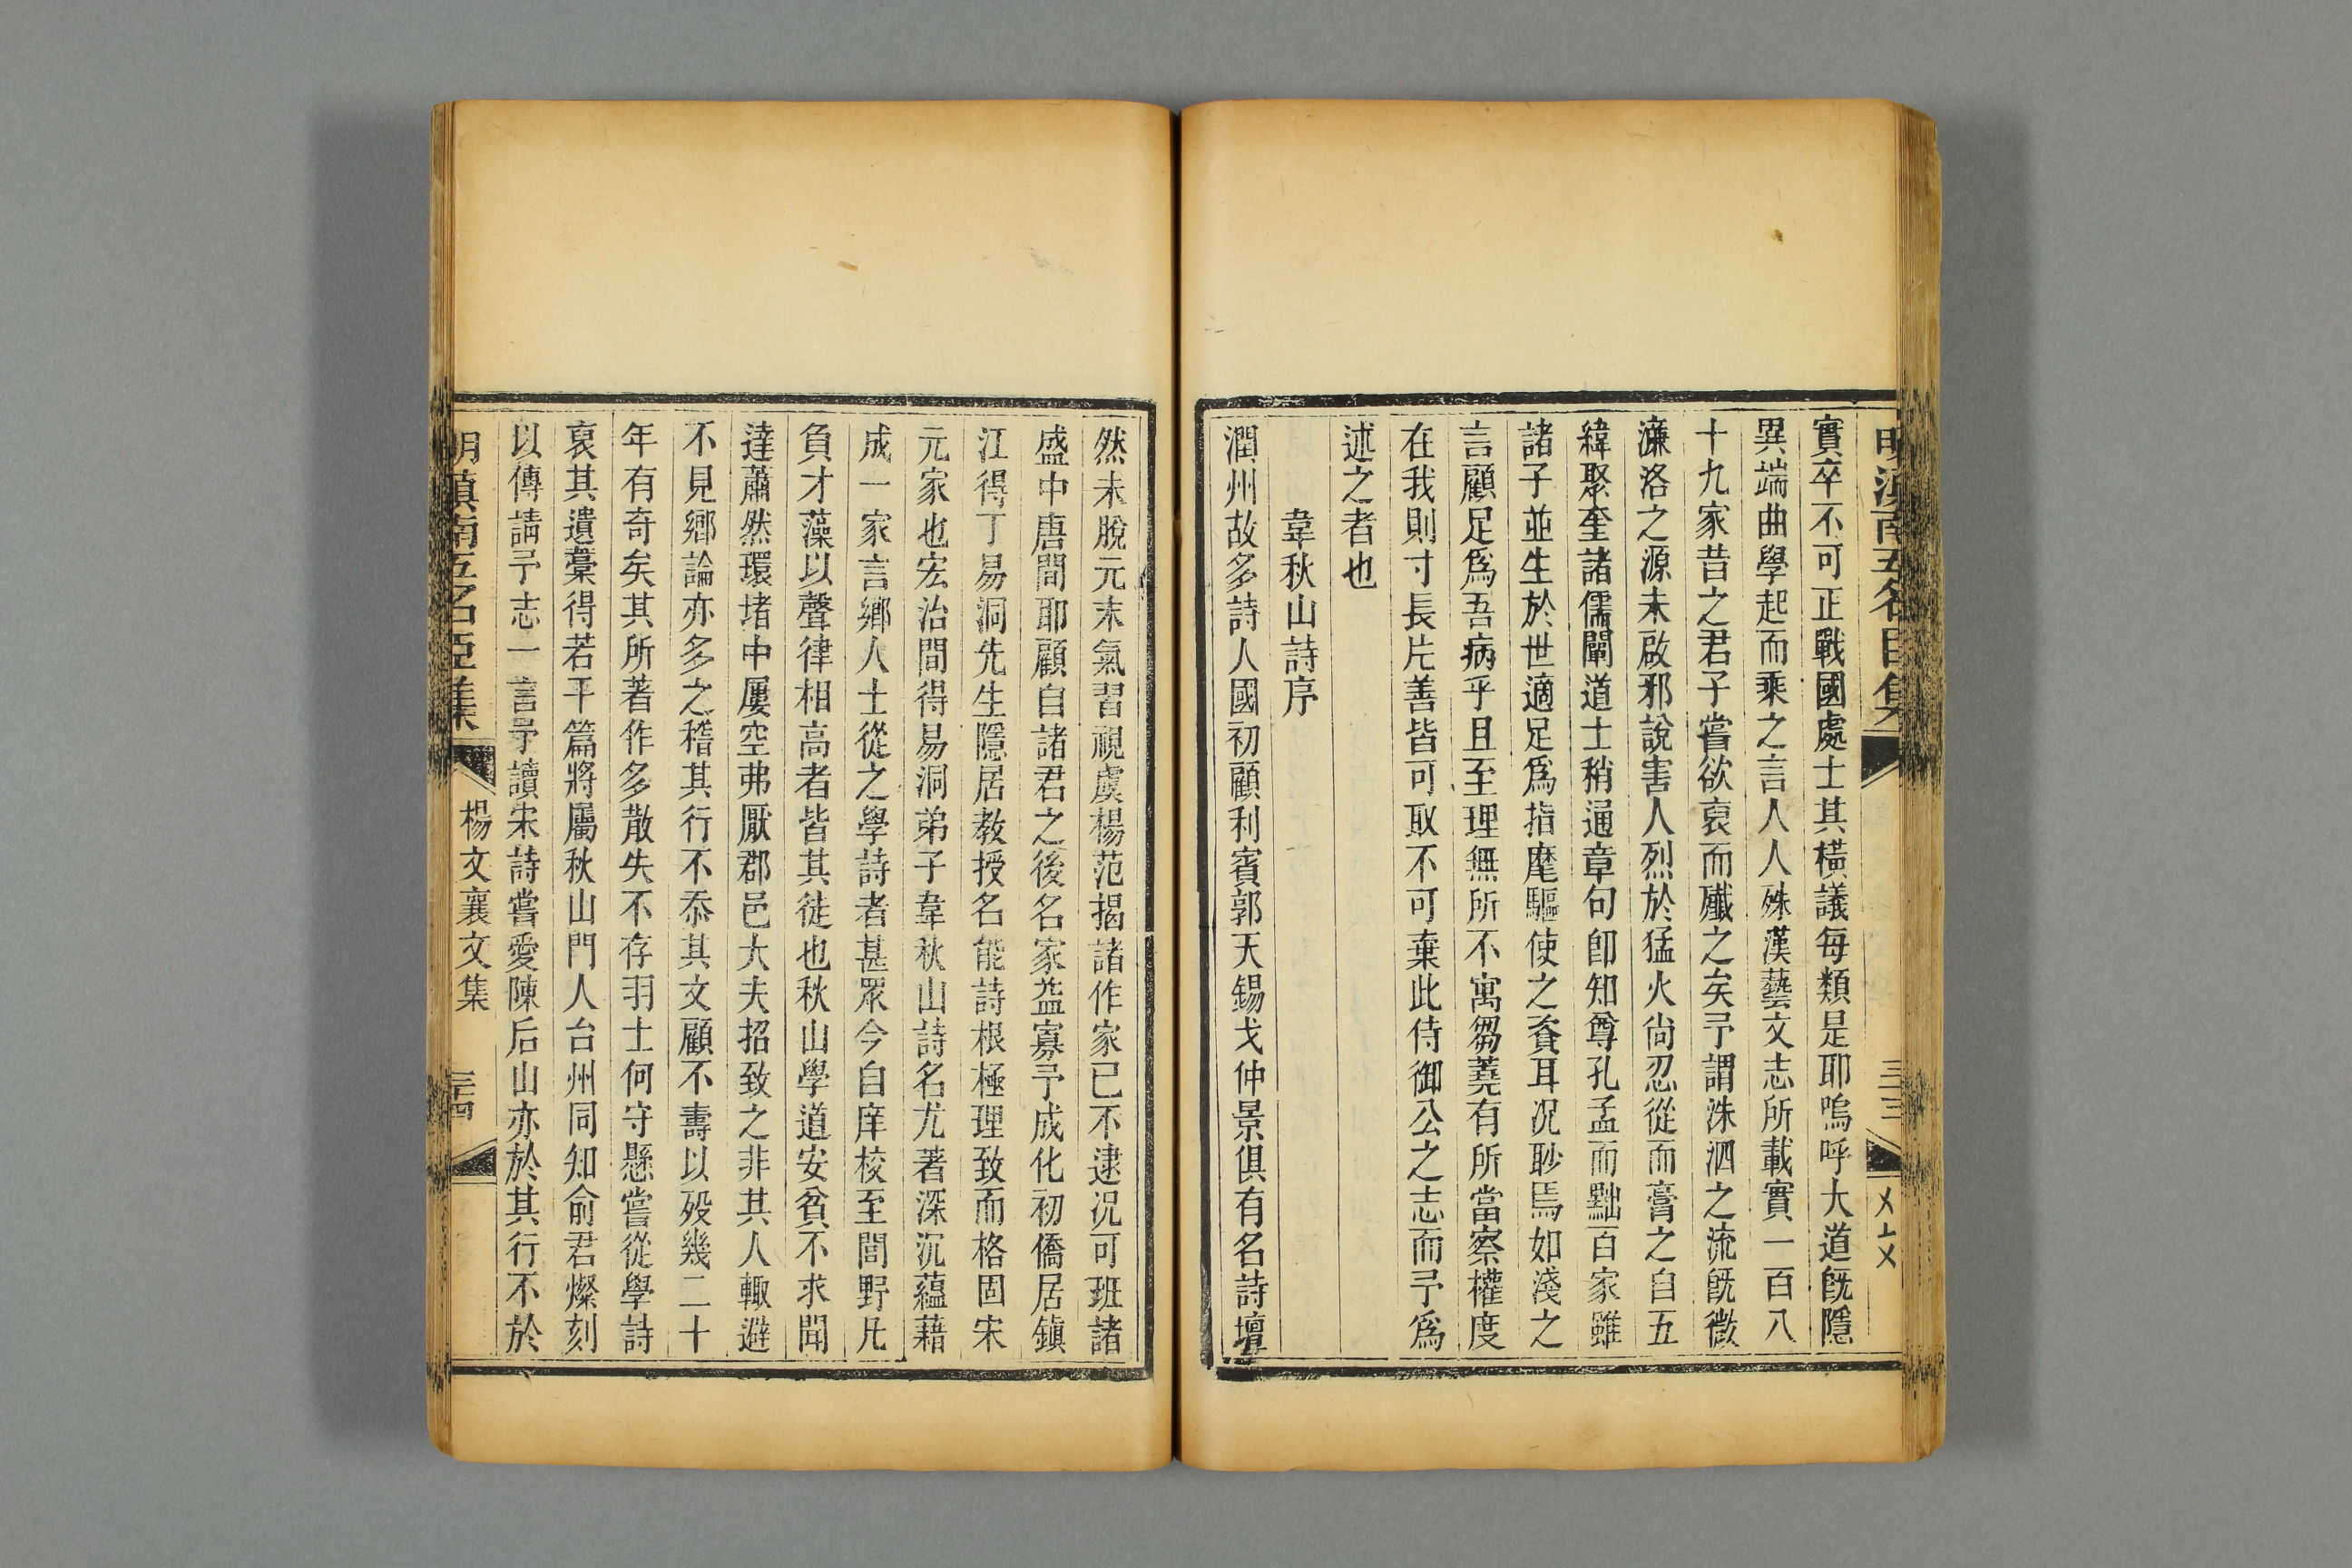 實卒不可正戰國處士其橫議每類是耶嗚呼大道旣隱
異端曲學起而乘之言人人殊漢藝文志所載實一百八
十九家昔之君子嘗欲裒而殲之矣予謂洙泗之流旣微
濂洛之源未啟邪說害人烈於猛火尙忍從而膏之自五
緯聚奎諸儒闡道士稍通章句卽知尊孔孟而黜百家雖
諸子並生於世適足爲指麾驅使之資耳况眇焉如淺之
言顧足爲吾病乎且至理無所不寓芻蕘有所當察權度
在我則寸長片善皆可取不可棄此侍御公之志而予爲
述之者也
韋秋山詩序
潤州故多詩人國初顧利賓郭天錫戈仲景俱有名詩壇
然未脫元末氣習視虞楊范揭諸作家已不逮况可班諸
盛中唐間耶顧自諸君之後名家葢寡予成化初僑居鎭
江得丁易洞先生隱居教授名能詩根極理致而格固宋
元家也宏治間得易洞弟子韋秋山詩名尤著深沉蘊藉
成一家言鄉人士從之學詩者甚眾今自庠校至閭野凡
負才藻以聲律相高者皆其徒也秋山學道安貧不求聞
達蕭然環堵中屢空弗厭郡邑大夫招致之非其人輙避
不見鄉論亦多之稽其行不忝其文顧不壽以歿幾二十
年有奇矣其所著作多散失不存羽士何守懸嘗從學詩
裒其遺藁得若干篇將屬秋山門人台州同知俞君燦刻
以傳請予志一言予讀宋詩嘗愛陳后山亦於其行不於
明滇南五名臣集
楊文襄文集
三四